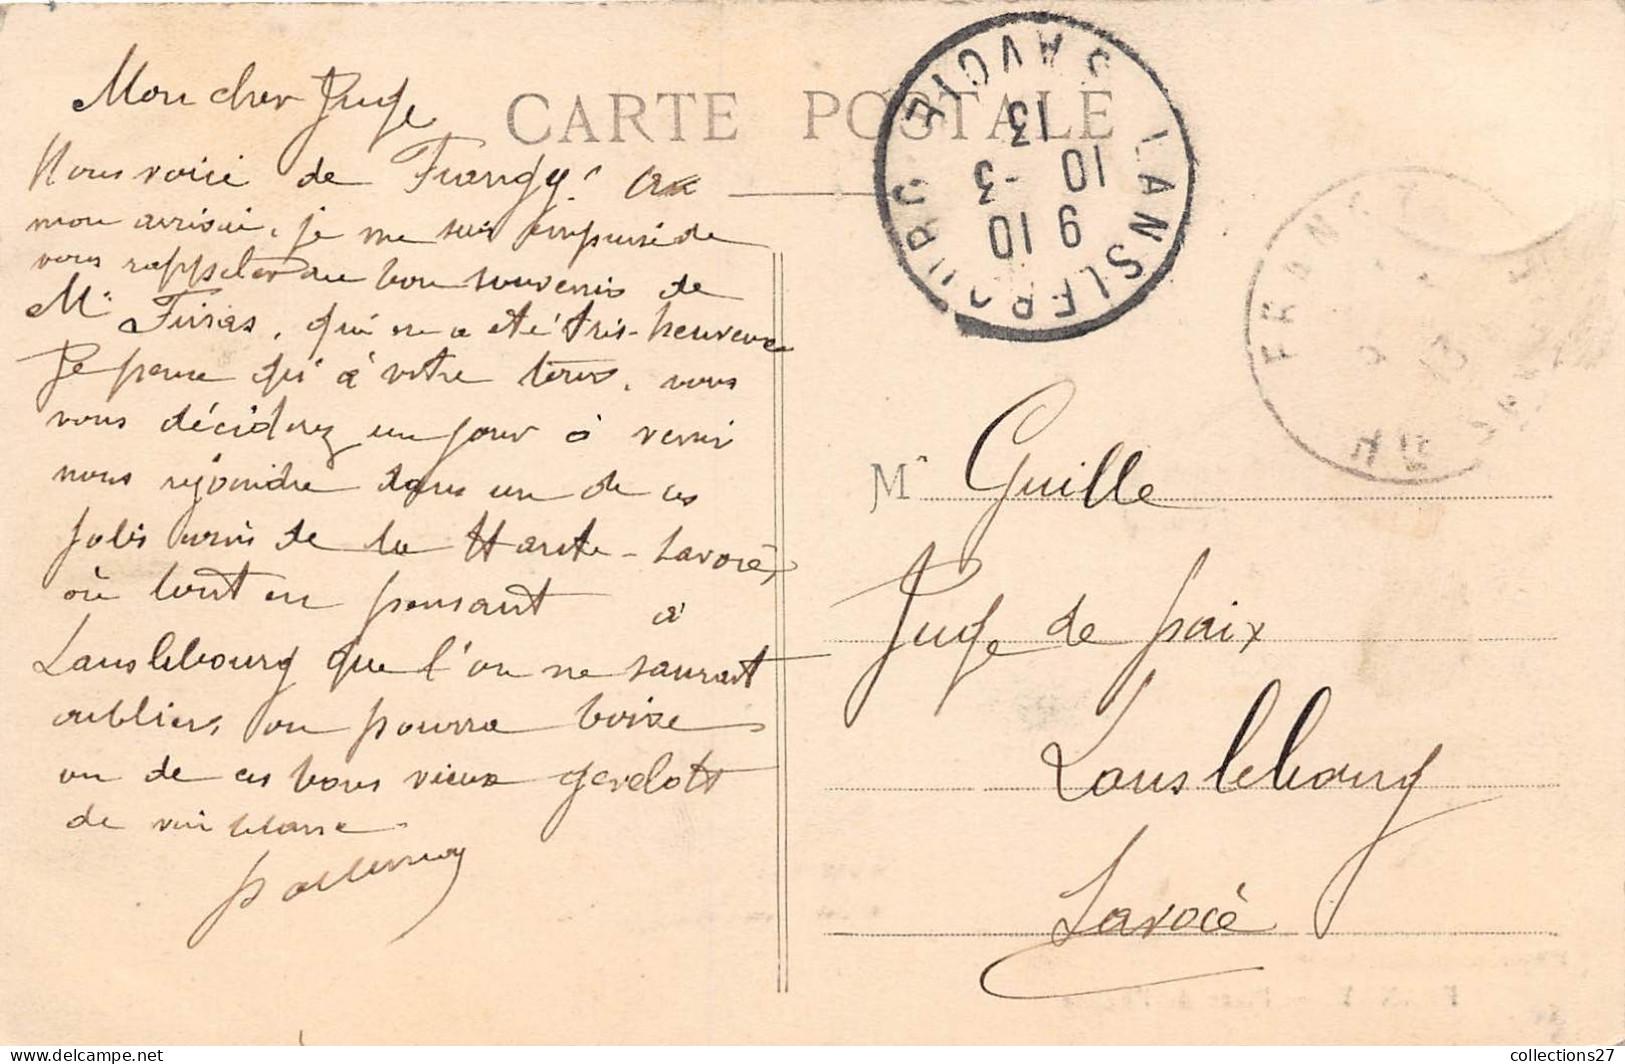 Mon cher Juge
CARTE POSTALE
Nous voici de Frangy! a
mon arrivée, je me suis empressé de
vous rappeler au bon souvenir de
Mr Firras, qui en a été très-heureux
Je pense qu'à votre tour, vous
vous déciderez un jour à venir
nous rejoindre dans un de ces
jolis coins de la Haute-Savoie,
où tout en pensant à
Lanslebourg que l'on ne saurait
oublier, on pourra boire
un de ces bons vieux gavelots
de vin blanc
LANSLEBOURG SAVOIE
9 10
10 -3
13
FRANGY
Mr Guille
Juge de paix
Lanslebourg
Savoie
collections27